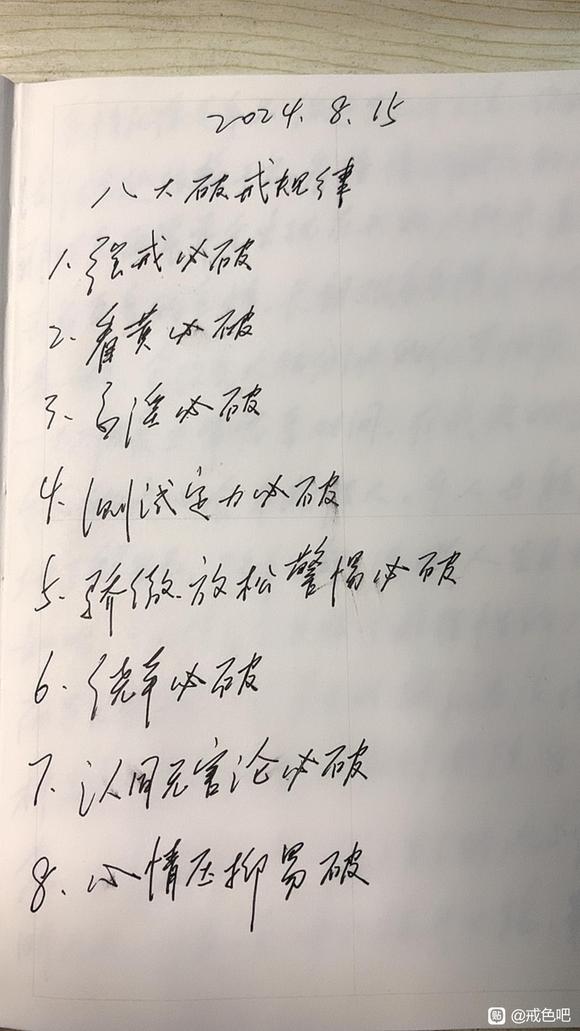 2024.8.15
八大破戒规律
1.强戒必破
2.看黄必破
3.意淫必破
4.测试定力必破
5.骄傲.放松警惕必破
6.侥幸必破
7.认同无害论必破
8.心情压抑易破
贴 @戒色吧